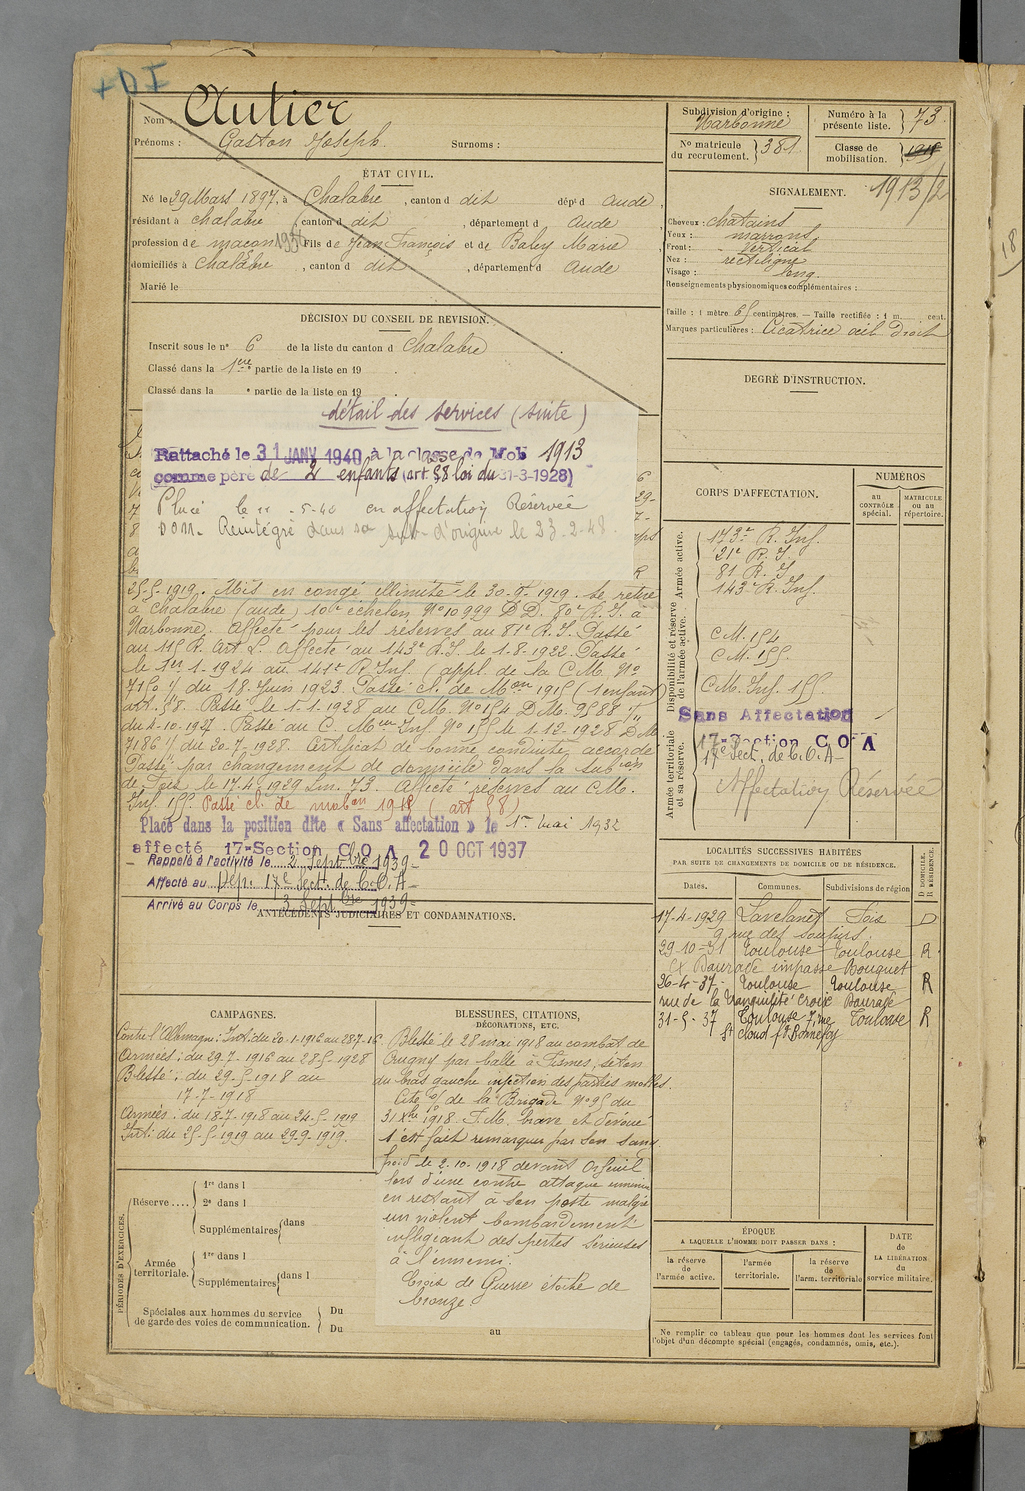 + D I
Nom : Autier
Prénoms : Gaston Joseph. Surnoms :
ÉTAT CIVIL.
Né le 29 Mars 1897, à Chalabre, canton d dit dépt d Aude,
résidant à Chalabre, canton d dit, département d Aude
profession de maçon Fils de Jean François et de Baby Marie
domiciliés à Chalabre, canton d dit, département d Aude
Marié le
DÉCISION DU CONSEIL DE REVISION.
Inscrit sous le n° 6 de la liste du canton d Chalabre
Classé dans la 1ère partie de la liste en 19 .
Classé dans la e partie de la liste en 19 .
détail des services (suite)
Rattaché le 31 JANV 1940 à la classe de Mob 1913
comme père de 2 enfants (art 58 loi du 31-3-1928)
Placé le 11-5-40 en affectation Réservée
DOM. Reintégré dans sa sub- d'origine le 23-2-48
25-5-1919. Mis en congé illimité le 30-9-1919. Se retire
à Chalabre (Aude) 10e échelon N° 10999 D.D. 80e R.I. à
Narbonne. Affecté pour les réserves au 81e R.I. Passé
au 115 R. Art L. Affecté au 143e R.I. le 1-8-1922. Passé
le 1er-1-1924 au 141e R. Inf. (appl. de la C.M. N°
7150 1/ du 18 Juin 1923. Passé cl. de Mon 1915 (1 enfant
art. 58. Passé le 1-1-1928 au C.M. N° 154 D.M. 9588 1/11
du 4-10-1927. Passé au C. Meur Inf. N° 155 le 1-12-1928 D.M
7186 1/ du 20-7-1928. Certificat de bonne conduite accordé
Passé par changement de domicile dans la subon
de Foix le 17-4-1929 Lm. 73. Affecté réserves au C.M.
Inf. 155 Passé cl. de mobon 1915 (art 58)
Placé dans la position dite « Sans affectation » le 1er mai 1932
affecté 17e Section C O A 20 OCT 1937
Rappelé à l'activité le 2 Septbre 1939-
Affecté au Dép. 17e Sect. de C.O.A-
Arrivé au Corps le 3 Septbre 1939-
ANTÉCÉDENTS JUDICIAIRES ET CONDAMNATIONS.
CAMPAGNES.
Contre l'Allemagne: Int: du 20-1-1916 au 28-7-16
Armées: du 29-7-1916 au 28-5-1928
Blessé: du 29-5-1918 au
17-7-1918
Armées: du 18-7-1918 au 24-5-1919
Int: du 25-5-1919 au 29-9-1919.
BLESSURES, CITATIONS,
DÉCORATIONS, ETC.
Blessé le 28 mai 1918 au combat de
par balle à Fismes, séton
du bras gauche infection des parties molles.
Cité o/ de la Brigade N° 95 du
31 Xbre 1918. F.M. brave et dévoué
s'est fait remarquer par son sang
froid le 2-10-1918 devant Orfeuil
lors d'une contre attaque ennemie
en restant à son poste malgré
un violent bombardement
infligeant des pertes sérieuses
à l'ennemi.
Croix de Guerre étoile de
bronze.
PÉRIODES D'EXERCICES.
Réserve....
1re dans l
2e dans l
Supplémentaires dans
Armée territoriale.
1re dans l
Supplémentaires dans l
Spéciales aux hommes du service
de garde des voies de communication.
Du
Du au
Subdivision d'origine :
Narbonne
No matricule
du recrutement. 381
Numéro à la
présente liste. 73
Classe de
mobilisation. 1915
1913/2
SIGNALEMENT.
Cheveux : chatains
Yeux : marrons
Front : Vertical
Nez : rectiligne
Visage : long.
Renseignements physionomiques complémentaires :
Taille : 1 mètre 65 centimètres. — Taille rectifiée : 1 m. cent.
Marques particulières : Cicatrice œil Droit
DEGRÉ D'INSTRUCTION.
CORPS D'AFFECTATION.
NUMÉROS
au
CONTRÔLE
spécial.
MATRICULE
ou au
répertoire.
Armée active.
Disponibilité et réserve
de l'armée active.
Armée territoriale
et sa réserve.
173e R. Inf.
21e R. I.
81 R. I
143e R. Inf.
C.M. 154
C.M. 155.
C.M. Inf. 155
Sans Affectation
17e Section C O A
17e Sect. de C.O.A-
Affectation Réservée
LOCALITÉS SUCCESSIVES HABITÉES
PAR SUITE DE CHANGEMENTS DE DOMICILE OU DE RÉSIDENCE.
D DOMICILE.
R RÉSIDENCE.
Dates. Communes. Subdivisions de région
17-4-1929 Lavelanet Foix D
9 rue des soupirs.
29-10-31 Toulouse Toulouse R
Cx Daurade impasse Bouquet
26-4-37- Toulouse Toulouse R
rue de la tranquilité Croix Daurade
31-5-37 Toulouse 7, rue Toulouse R
St Cloud fg Bonnefoy
ÉPOQUE
A LAQUELLE L'HOMME DOIT PASSER DANS :
la réserve
de
l'armée active.
l'armée
territoriale.
la réserve
de
l'arm. territoriale
DATE
de
LA LIBÉRATION
du
service militaire.
Ne remplir ce tableau que pour les hommes dont les services font
l'objet d'un décompte spécial (engagés, condamnés, omis, etc.).
18